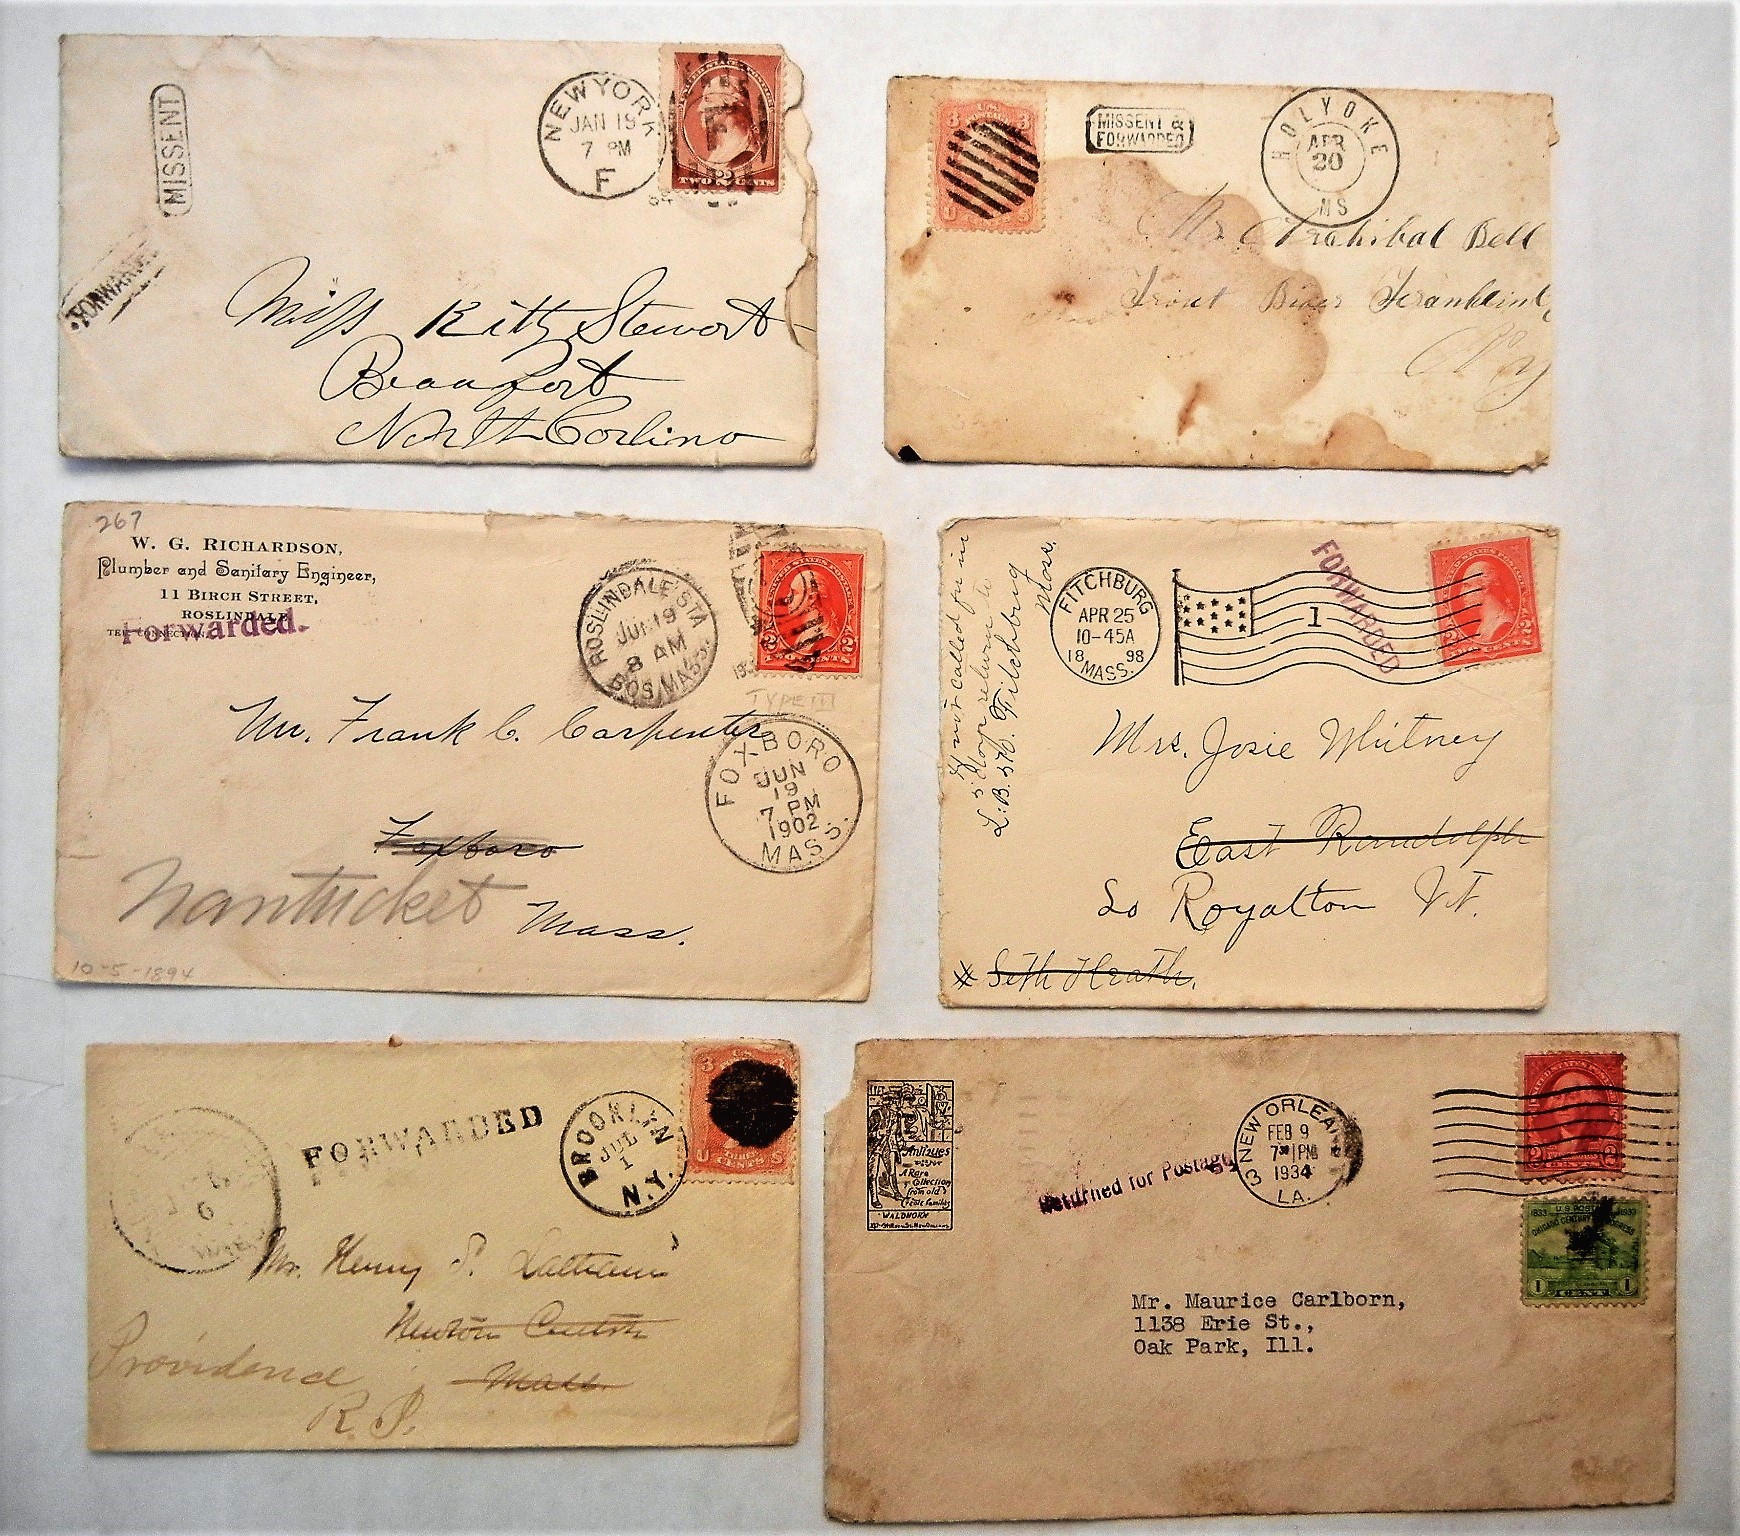 MISSENT
FORWARDED
NEW YORK
JAN 19
7 PM
F
84
TWO CENTS
Miss Kitty Stewart
Beaufort
North Carlina
3 3
U S
MISSENT &
FORWARDED
HOLYOKE
APR
20
MS
Mr Archibal Bell
Franklin
267
W. G. RICHARDSON,
Plumber and Sanitary Engineer,
11 BIRCH STREET,
ROSLINDALE
TEL. CONNECTION.
Forwarded.
ROSLINDALE STA
JUN 19
8 AM
BOS. MASS.
2 2
TWO CENTS
TYPE III
Mr. Frank C. Carpenter
FOXBORO
JUN
19
7 PM
1902
MASS.
Foxboro
Nantucket Mass.
10-5-1894
If not called for in
5 days return to
L.B. 576. Fitchburg
Mass.
FITCHBURG
APR 25
10-45A
18 98
MASS.
1
FORWARDED
2 2
TWO CENTS
Mrs. Josie Whitney
East Randolph
So Royalton Vt.
Seth Heath.
FORWARDED
BROOKLYN
JUL
1
N.Y.
3
U S
CENTS
6
Mr. Henry S. Latham
Newton Centre
Mass.
Providence
R. I.
Antiques
A Rare
Collection
from old
Creole Families
WALDHORN
Returned for Postage
3 NEW ORLEANS
FEB 9
7 PM
1934
LA.
2 2
1833 U.S. POSTAGE 1933
CHICAGO CENTURY OF PROGRESS
1 CENT 1
Mr. Maurice Carlborn,
1138 Erie St.,
Oak Park, Ill.